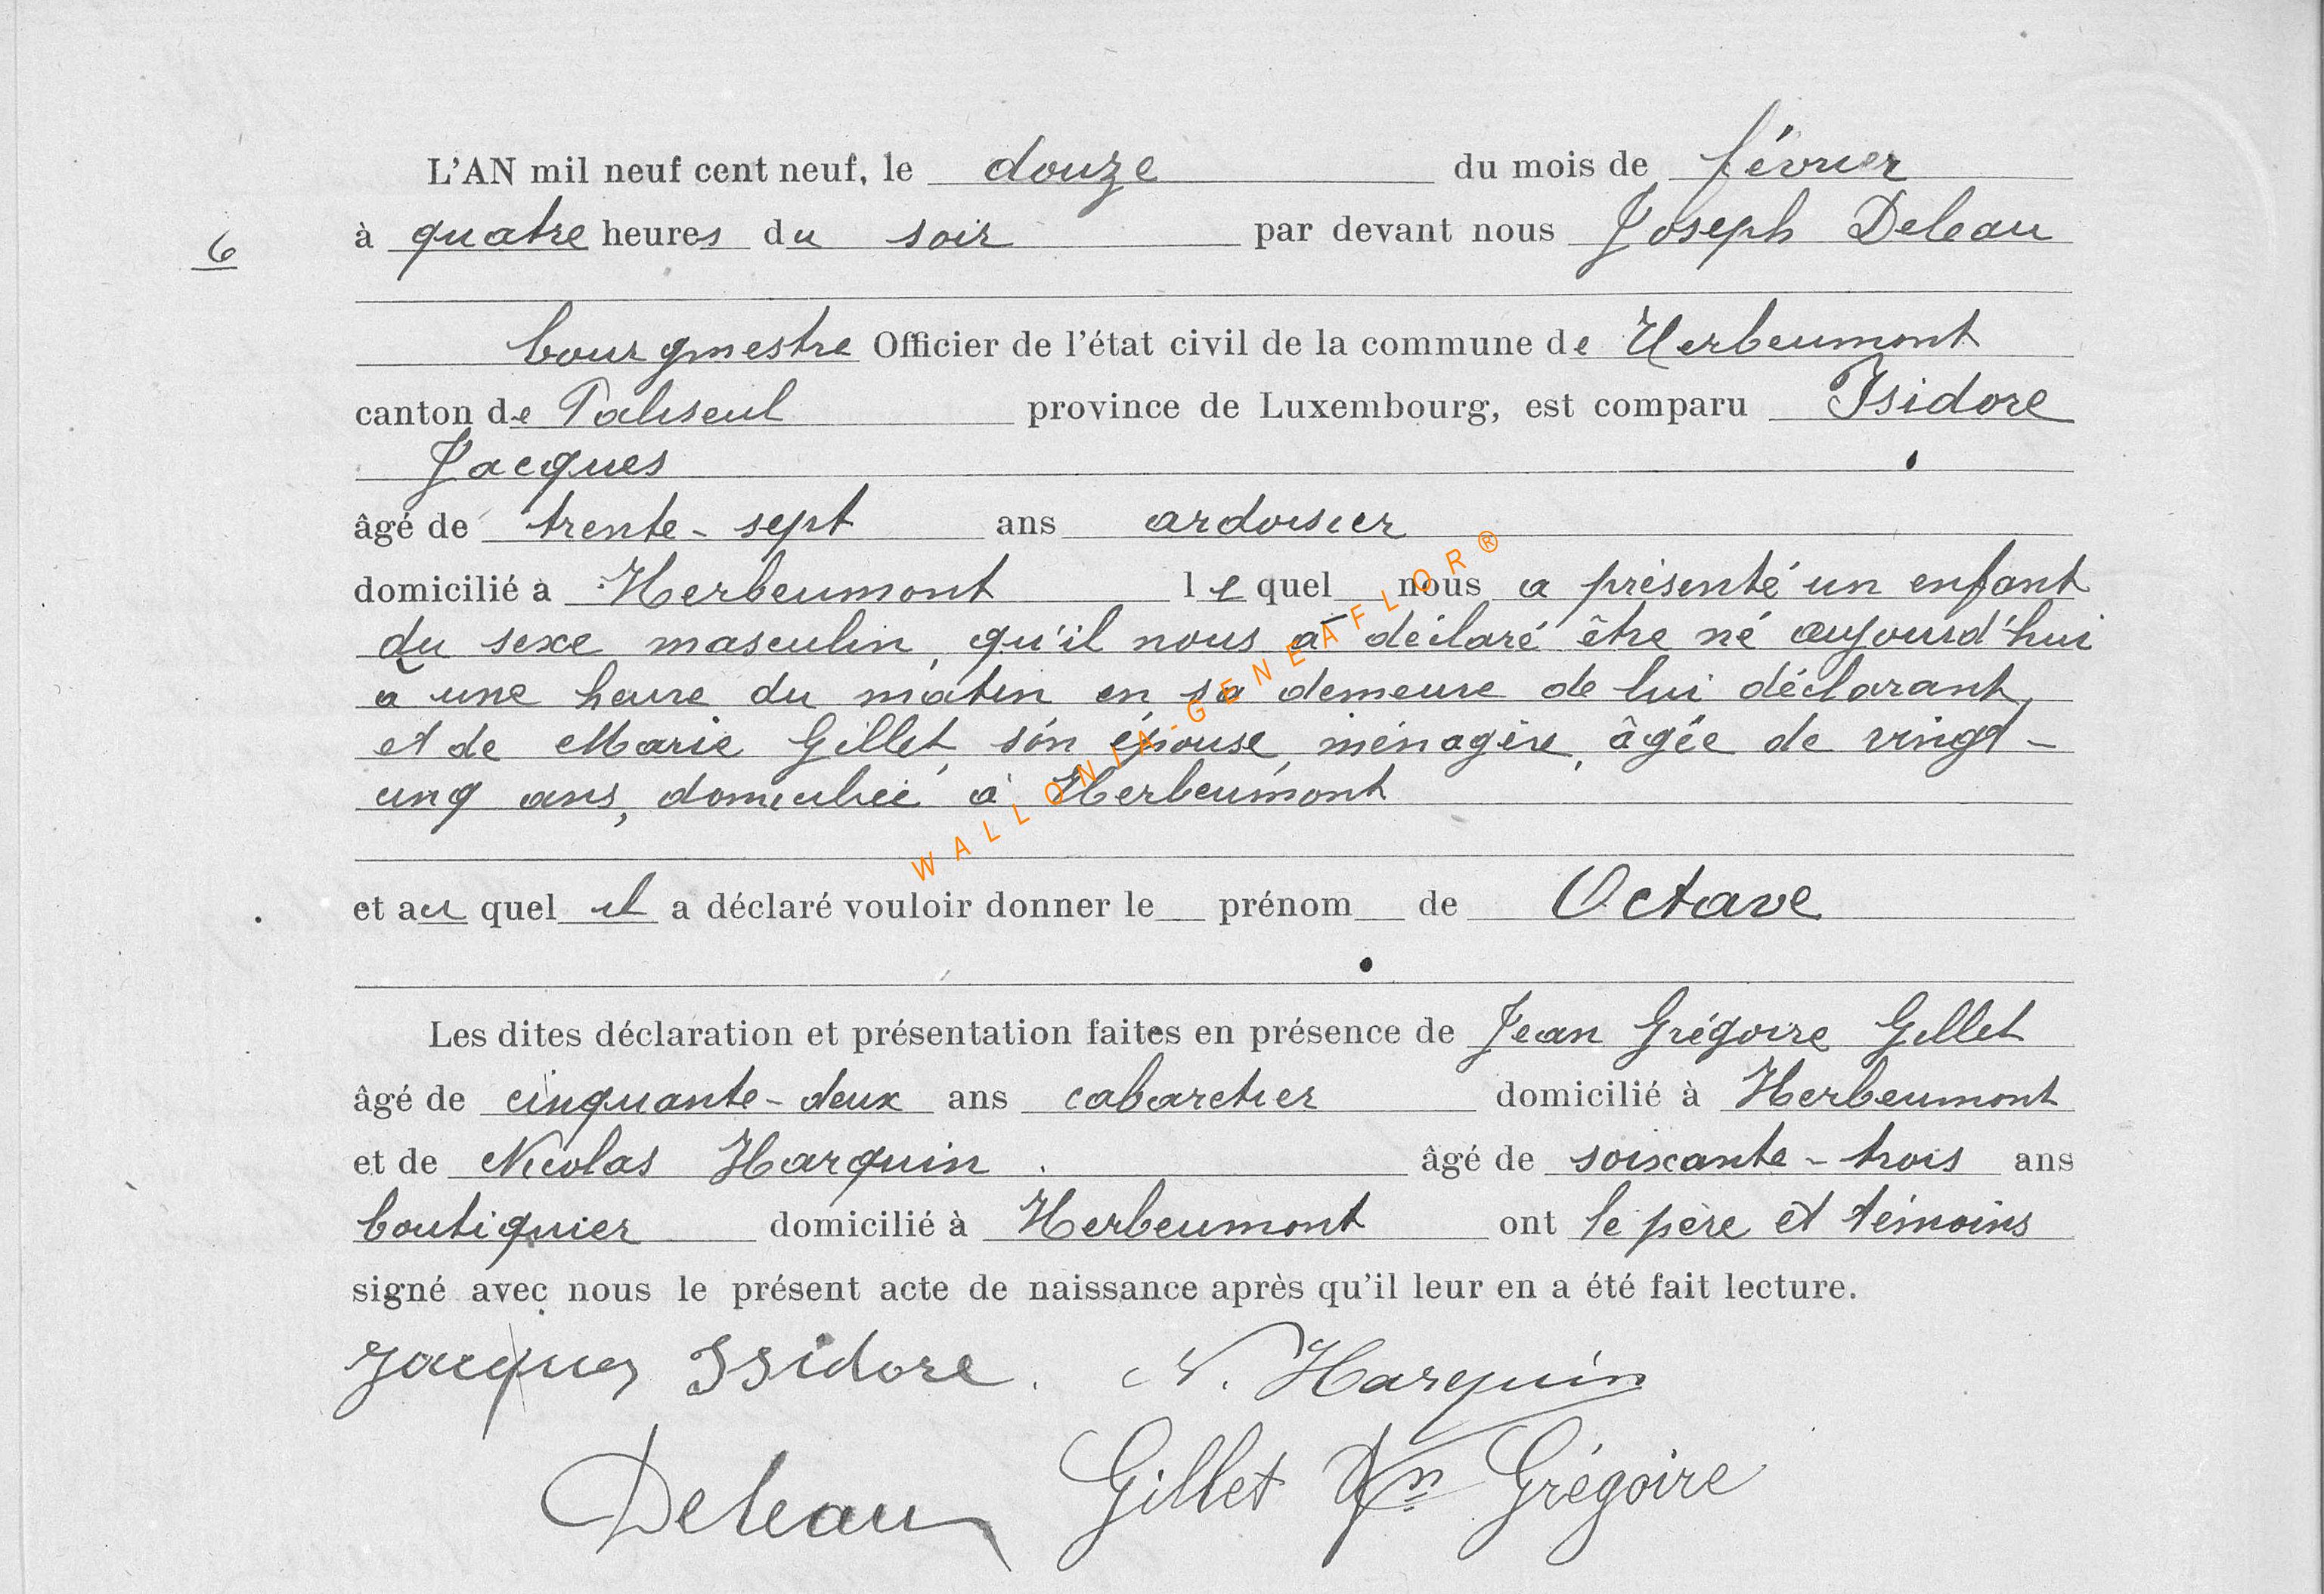 L'AN mil neuf cent neuf, le douze du mois de février
6
à quatre heures du soir par devant nous Joseph Deleau
bourgmestre Officier de l'état civil de la commune de Herbeumont
canton de Paliseul province de Luxembourg, est comparu Isidore
Jacques
âgé de trente-sept ans ardoisier
domicilié à Herbeumont lequel nous a présenté un enfant
du sexe masculin, qu'il nous a déclaré être né aujourd'hui
à une heure du matin en sa demeure de lui déclarant,
et de Marie Gillet, son épouse, ménagère, âgée de vingt-
cinq ans, domiciliée à Herbeumont
WALLONIA-GENEAFLOR®
et au quel il a déclaré vouloir donner le prénom de Octave
Les dites déclaration et présentation faites en présence de Jean Grégoire Gillet
âgé de cinquante-deux ans cabaretier domicilié à Herbeumont
et de Nicolas Harquin. âgé de soixante-trois ans
boutiquier domicilié à Herbeumont ont le père et témoins
signé avec nous le présent acte de naissance après qu'il leur en a été fait lecture.
Jacques Isidore. N. Harquin
Deleau Gillet Jn Grégoire